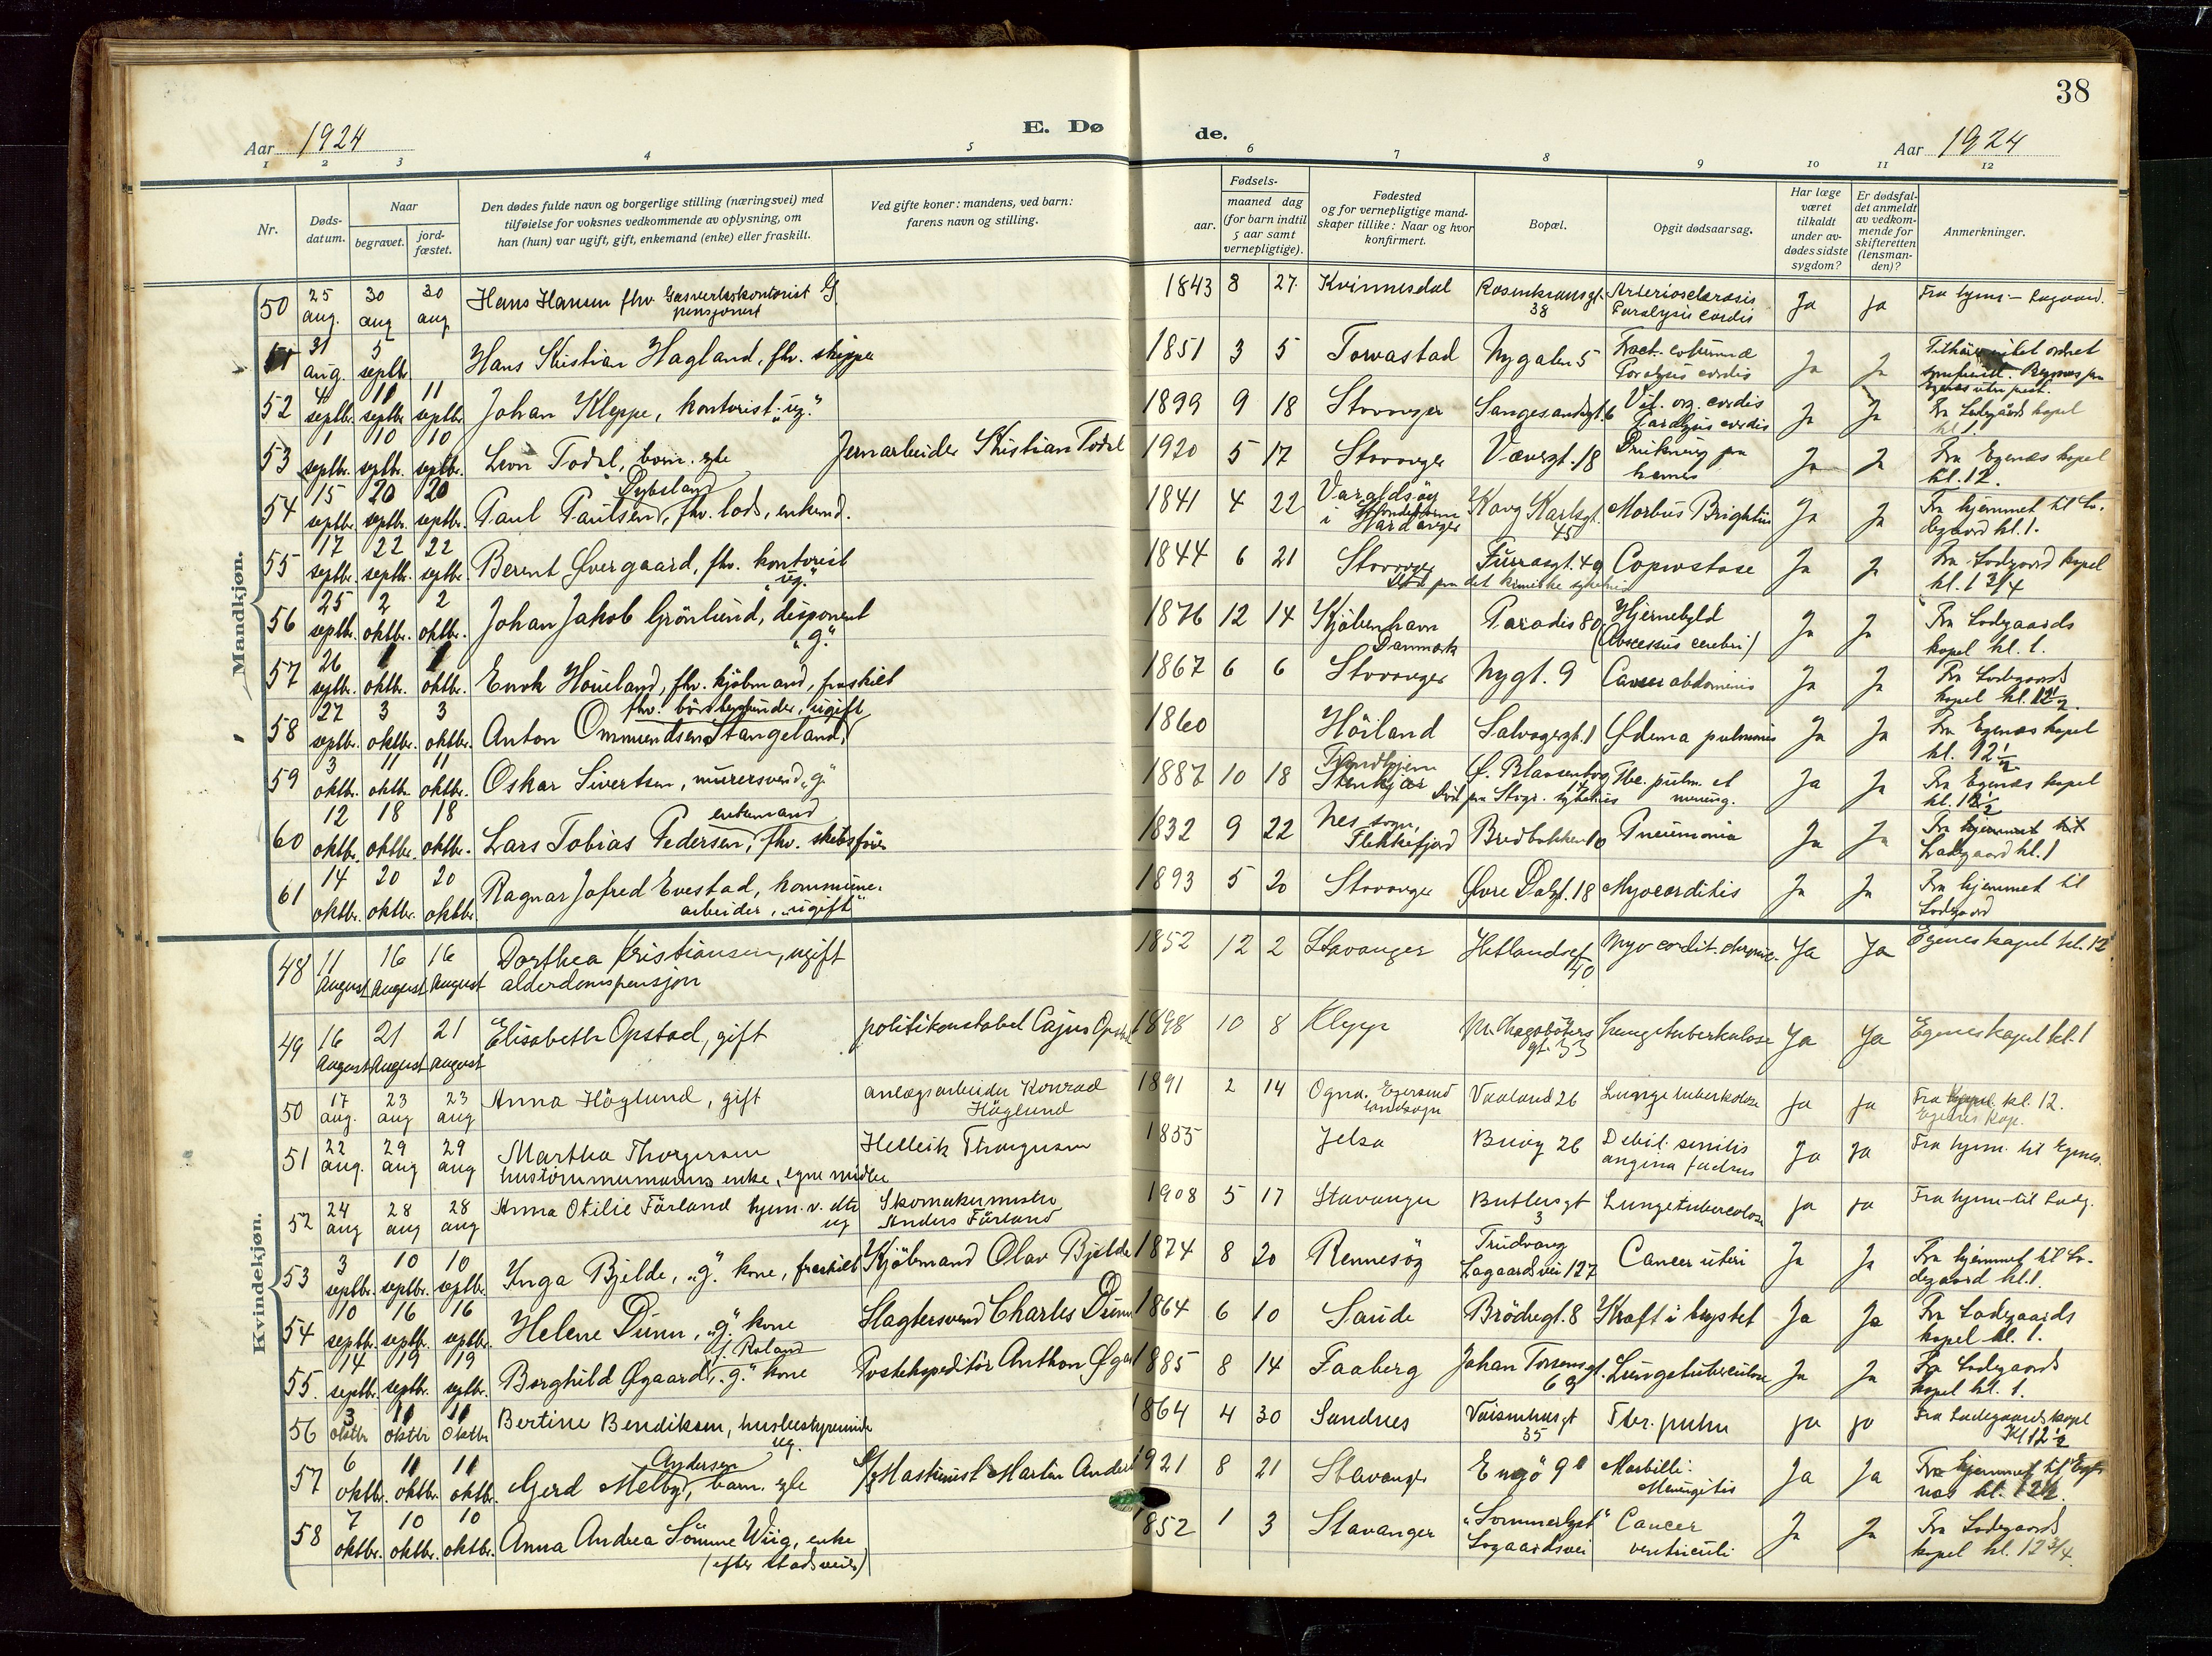 38
Aar 1924
E. Dø
de.
Aar 1924
1 2 3 4 5 6 7 8 9 10 11 12
Nr.
Døds-datum.
Naar
begravet.
jord-fæstet.
Den dødes fulde navn og borgerlige stilling (næringsvei) med
tilføielse for voksnes vedkommende av oplysning, om
han (hun) var ugift, gift, enkemand (enke) eller fraskilt.
Ved gifte koner: mandens, ved barn:
farens navn og stilling.
Fødsels-
aar.
maaned dag
(for barn indtil
5 aar samt
vernepligtige).
Fødested
og for vernepligtige mand-
skaper tillike: Naar og hvor
konfirmert.
Bopæl.
Opgit dødsaarsag.
Har læge
været
tilkaldt
under av-
dødes sidste
sygdom?
Er dødsfal-
det anmeldt
av vedkom-
mende for
skifteretten
(lensman-
den)?
Anmerkninger.
Mandkjøn.
50 25 aug. 30 aug 30 aug Hans Hansen fhv. Gasverkskontorist G
pensjonert
1843 8 27. Kvinnesdal Rosenkransgt. 38 Arteriosclerosis Paralysis cordis Ja ja Fra hjem - Lagaard.
51 31 aug. 5 septbr. Hans Kristian Hagland, fhv. skipper
1851 3 5 Torvastad Nygaten 5 Fract. columnæ Paralysis cordis Ja Ja
52 4 septbr. 11 septbr. 11 septbr. Johan Kleppe, kontorist "ug."
1899 9 18 Stavanger Sangesandsgt. 6 Vit. org. cordis Paralysis cordis Ja Ja Fra Ladegårds kapel kl. 1.
53 1 septbr. 10 septbr. 10 septbr. Leon Todal, barn. egte Jernarbeider Kristian Todal
1920 5 17 Stavanger Værsgt. 18 Drukning paa havnen Ja Ja Fra Egenæs kapel kl. 12.
54 15 septbr. 20 septbr. 20 septbr. Paul Paulsen Dybsland, fhv. lods, enkemd.
1841 4 22 Varaldsöy i Hardanger Kong Karlsgt. 45 Morbus Brightii Ja Ja Fra hjemmet til La-
degaard kl. 1.
55 17 septbr. 22 septbr. 22 septbr. Berent Øvergaard, fhv. kontorist
"ug."
1844 6 21 Stavanger Furrasgt. 49 Coprostase Ja Ja Fra Ladegaard kapel
kl. 1 3/4
56 25 septbr. 2 oktbr. 2 oktbr. Johan Jakob Grönlund, disponent
"g."
1876 12 14 Kjöbenhavn Danmark Paradis 80 Hjernebyld (Abscessus cerebri) Ja Ja Fra Ladegaards
kapel kl. 1.
57 26 septbr. 1 oktbr. 1 oktbr. Enok Houeland, fhv. kjöbmand, fraskilt
1867 6 6 Stavanger Nygt. 9 Cancer abdominis Ja Ja Fra Ladegaards
kapel kl. 12½.
58 27 septbr. 3 oktbr. 3 oktbr. Anton Ommundsen Stangeland,
1860 Höiland Salvagergt. 1 Ødema pulmonis Ja Ja Fra Egenæs kapel
kl. 12½
59 3 oktbr. 11 oktbr. 11 oktbr. Oskar Sivertsen, murersvend "g."
1887 10 18 Stenkjær Ø. Blaasenborg 17 Tbc. pulm. et mening. Ja Ja Fra Egenæs kapel
kl. 12½
60 12 oktbr. 18 oktbr. 18 oktbr. Lars Tobias Pedersen, enkemand fhv. skibsförer
1832 9 22 Nes sogn, Flekkefjord Bredbakken 10 Pneumonia Ja Ja Fra hjemmet til
Ladegaard kl. 1
61 14 oktbr. 20 oktbr. 20 oktbr. Ragnar Jofred Evestad, kommune-
arbeider, "ugift"
1893 5 20 Stavanger Øvre Dalgt. 18 Myocarditis Ja Ja Fra hjemmet til
Ladgaard
Kvindekjøn.
48 11 August 16 August 16 August Dorthea Kristiansen, ugift
alderdomspensjon
1852 12 2 Stavanger Hetlandsgt 40. Myocardit. chronic. Ja Ja Egenes kapel kl. 12.
49 16 August 21 August 21 August Elisabeth Opstad, gift politikonstabel Cajus Opstad
1898 10 8 Klepp gt. 33 Lungetuberkulose Ja Ja Egenes kapel kl. 1
50 17 aug. 23 aug 23 aug Anna Höglund, gift anlægsarbeider Konrad
Höglund
1891 2 14 Ogna. Egersund landsogn Vaaland 26 Lungetuberkolose ja ja Fra kapel kl. 12.
Egenes kap.
51 22 aug. 29 aug 29 aug Martha Thorgersen
enke, egne midler Helleik Thorgersen
1855 Jelsa Buøy 26 Debil. senilis angina Ja ja Fra hjem. til Egenes.
52 24 aug 28 aug 28 aug Anna Otilie Fårland hjem. v. eltr
ug Skomakermester
Anders Fårland
1908 5 17 Stavanger Butlersgt 3 Lungetuberculose ja ja Fra hjem - til Ladg.
53 3 septbr. 10 septbr. 10 septbr. Inga Bjelde, "g." kone, fraskilt Kjöbmand Olav Bjelde
1874 8 20 Rennesöy Trudvang Lagaardsvei 127 Cancer uteri Ja Ja Fra hjemmet til La-
degaard kl. 1.
54 10 septbr. 16 septbr. 16 septbr. Helene Dunn, "g." kone Slagtersvend Charles Dunn
1864 6 10 Saude Brödregt. 8 Kræft i brystet Ja Ja Fra Ladegaards
kapel kl. 1.
55. 14 septbr. 19 septbr. 19 septbr. Borghild Øgaard f. Roland "g." kone Postekspeditör Anthon Øgaard
1885 8 14 Faaberg Johan Torsensgt. 69 Lungetuberculose Ja Ja Fra Ladegaards
kapel kl. 1.
56 3 oktbr 11 oktbr 11 oktbr Bertine Bendiksen, husbestyrerinde
ug.
1864 4 30 Sandnes Vaisenhusgt 35 Tbr. pulm ja ja Fra Ladegaardskapel
Kl 12½
57 6 oktbr. 11 oktbr. 11 oktbr. Gerd Melby Andersen, barn. egte Maskinist Martin Anders
1921 8 21 Stavanger Engø 9 Morbilli. Meningitis Ja Ja Fra hjemmet til Ege-
næs kl. 12½.
58 7 oktbr. 10 oktbr. 10 oktbr. Anna Andrea Sömme Wiig, enke
(efter stadsveier)
1852 1 3 Stavanger "Sommerlyst" Lagaardsvei Cancer ventriculi Ja Ja Fra Ladegaards
kapel kl. 12 3/4.